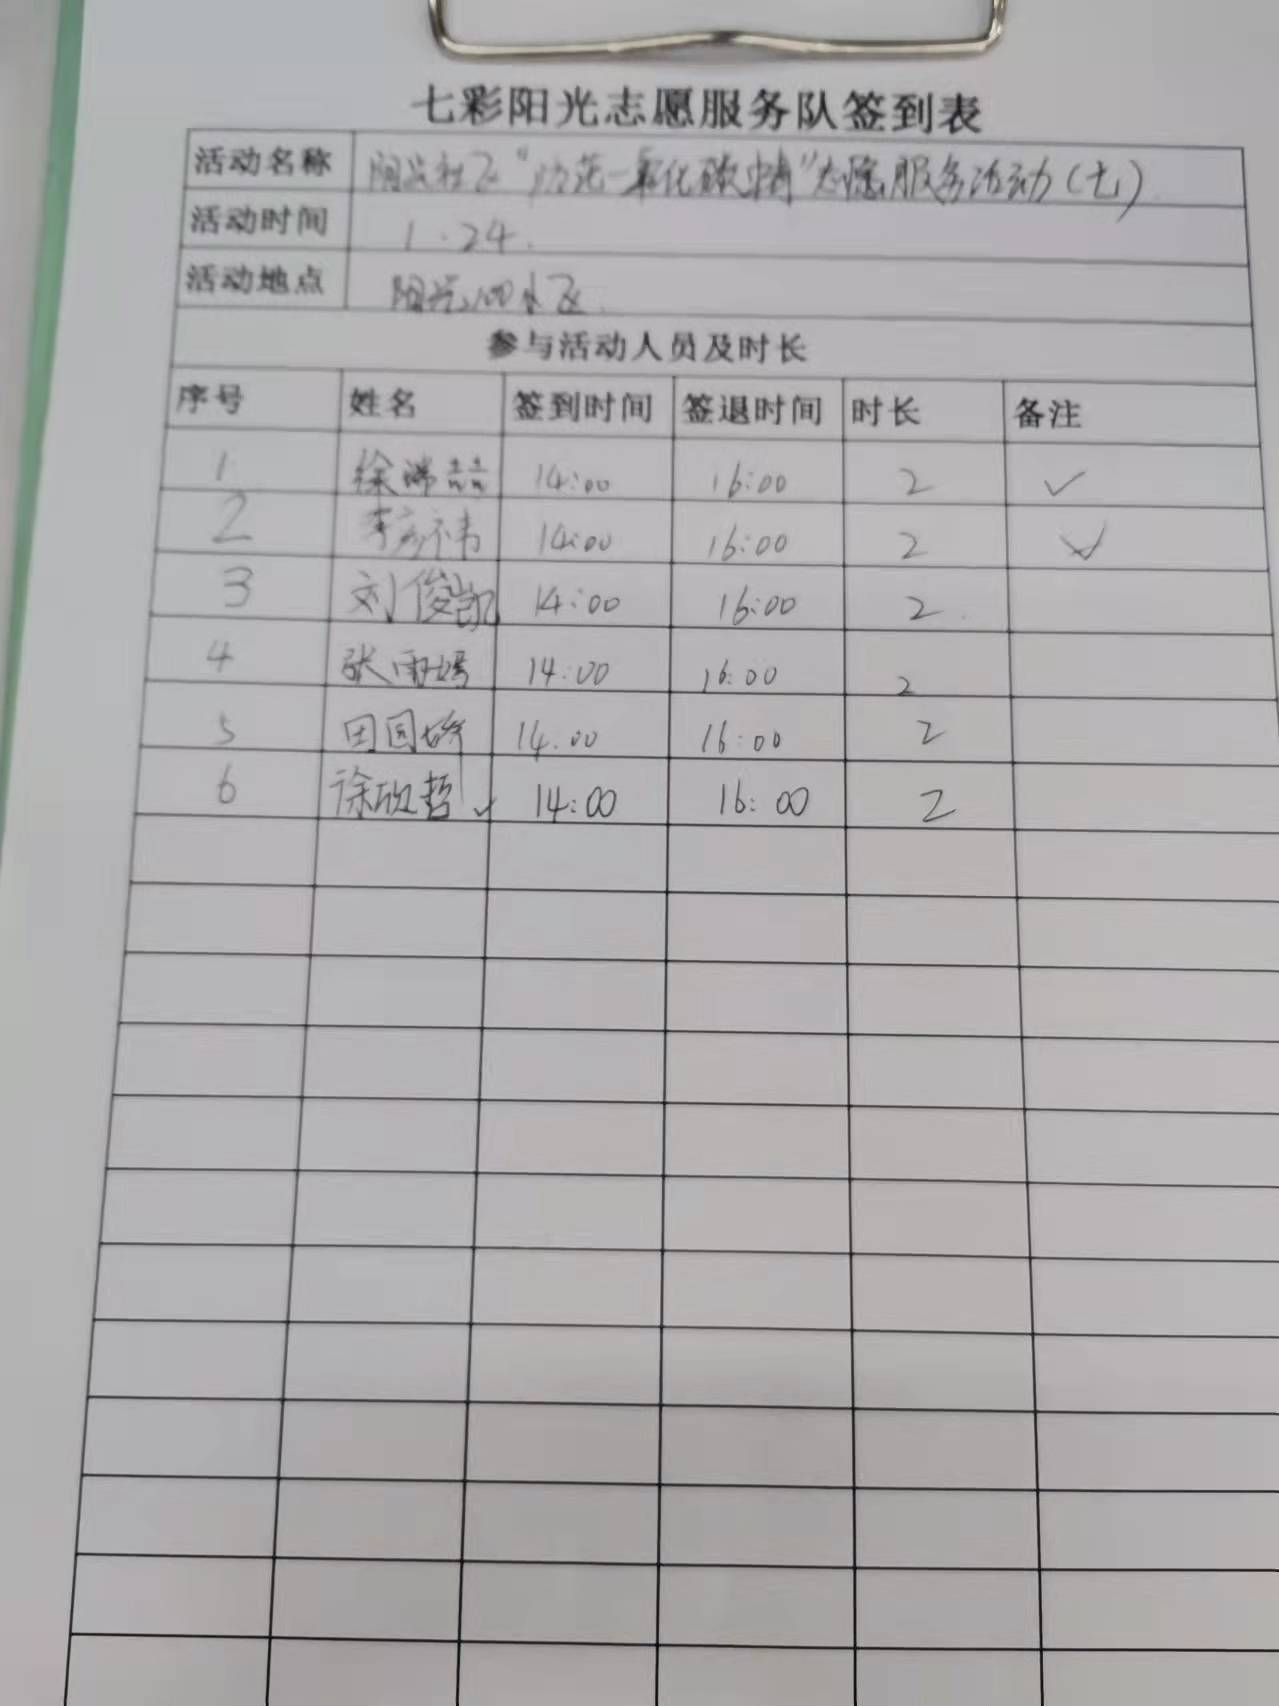 七彩阳光志愿服务队签到表
活动名称 阳光社区“防范一氧化碳中毒”志愿服务活动(七)
活动时间 1.24.
活动地点 阳光100小区
参与活动人员及时长
序号 姓名 签到时间 签退时间 时长 备注
1 徐 14:00 16:00 2 ✓
2 李彦祎 14:00 16:00 2 ✓
3 刘俊凯 14:00 16:00 2
4 张雨嫣 14:00 16:00 2
5 田园 14.00 16:00 2
6 徐欣哲 ✓ 14:00 16:00 2